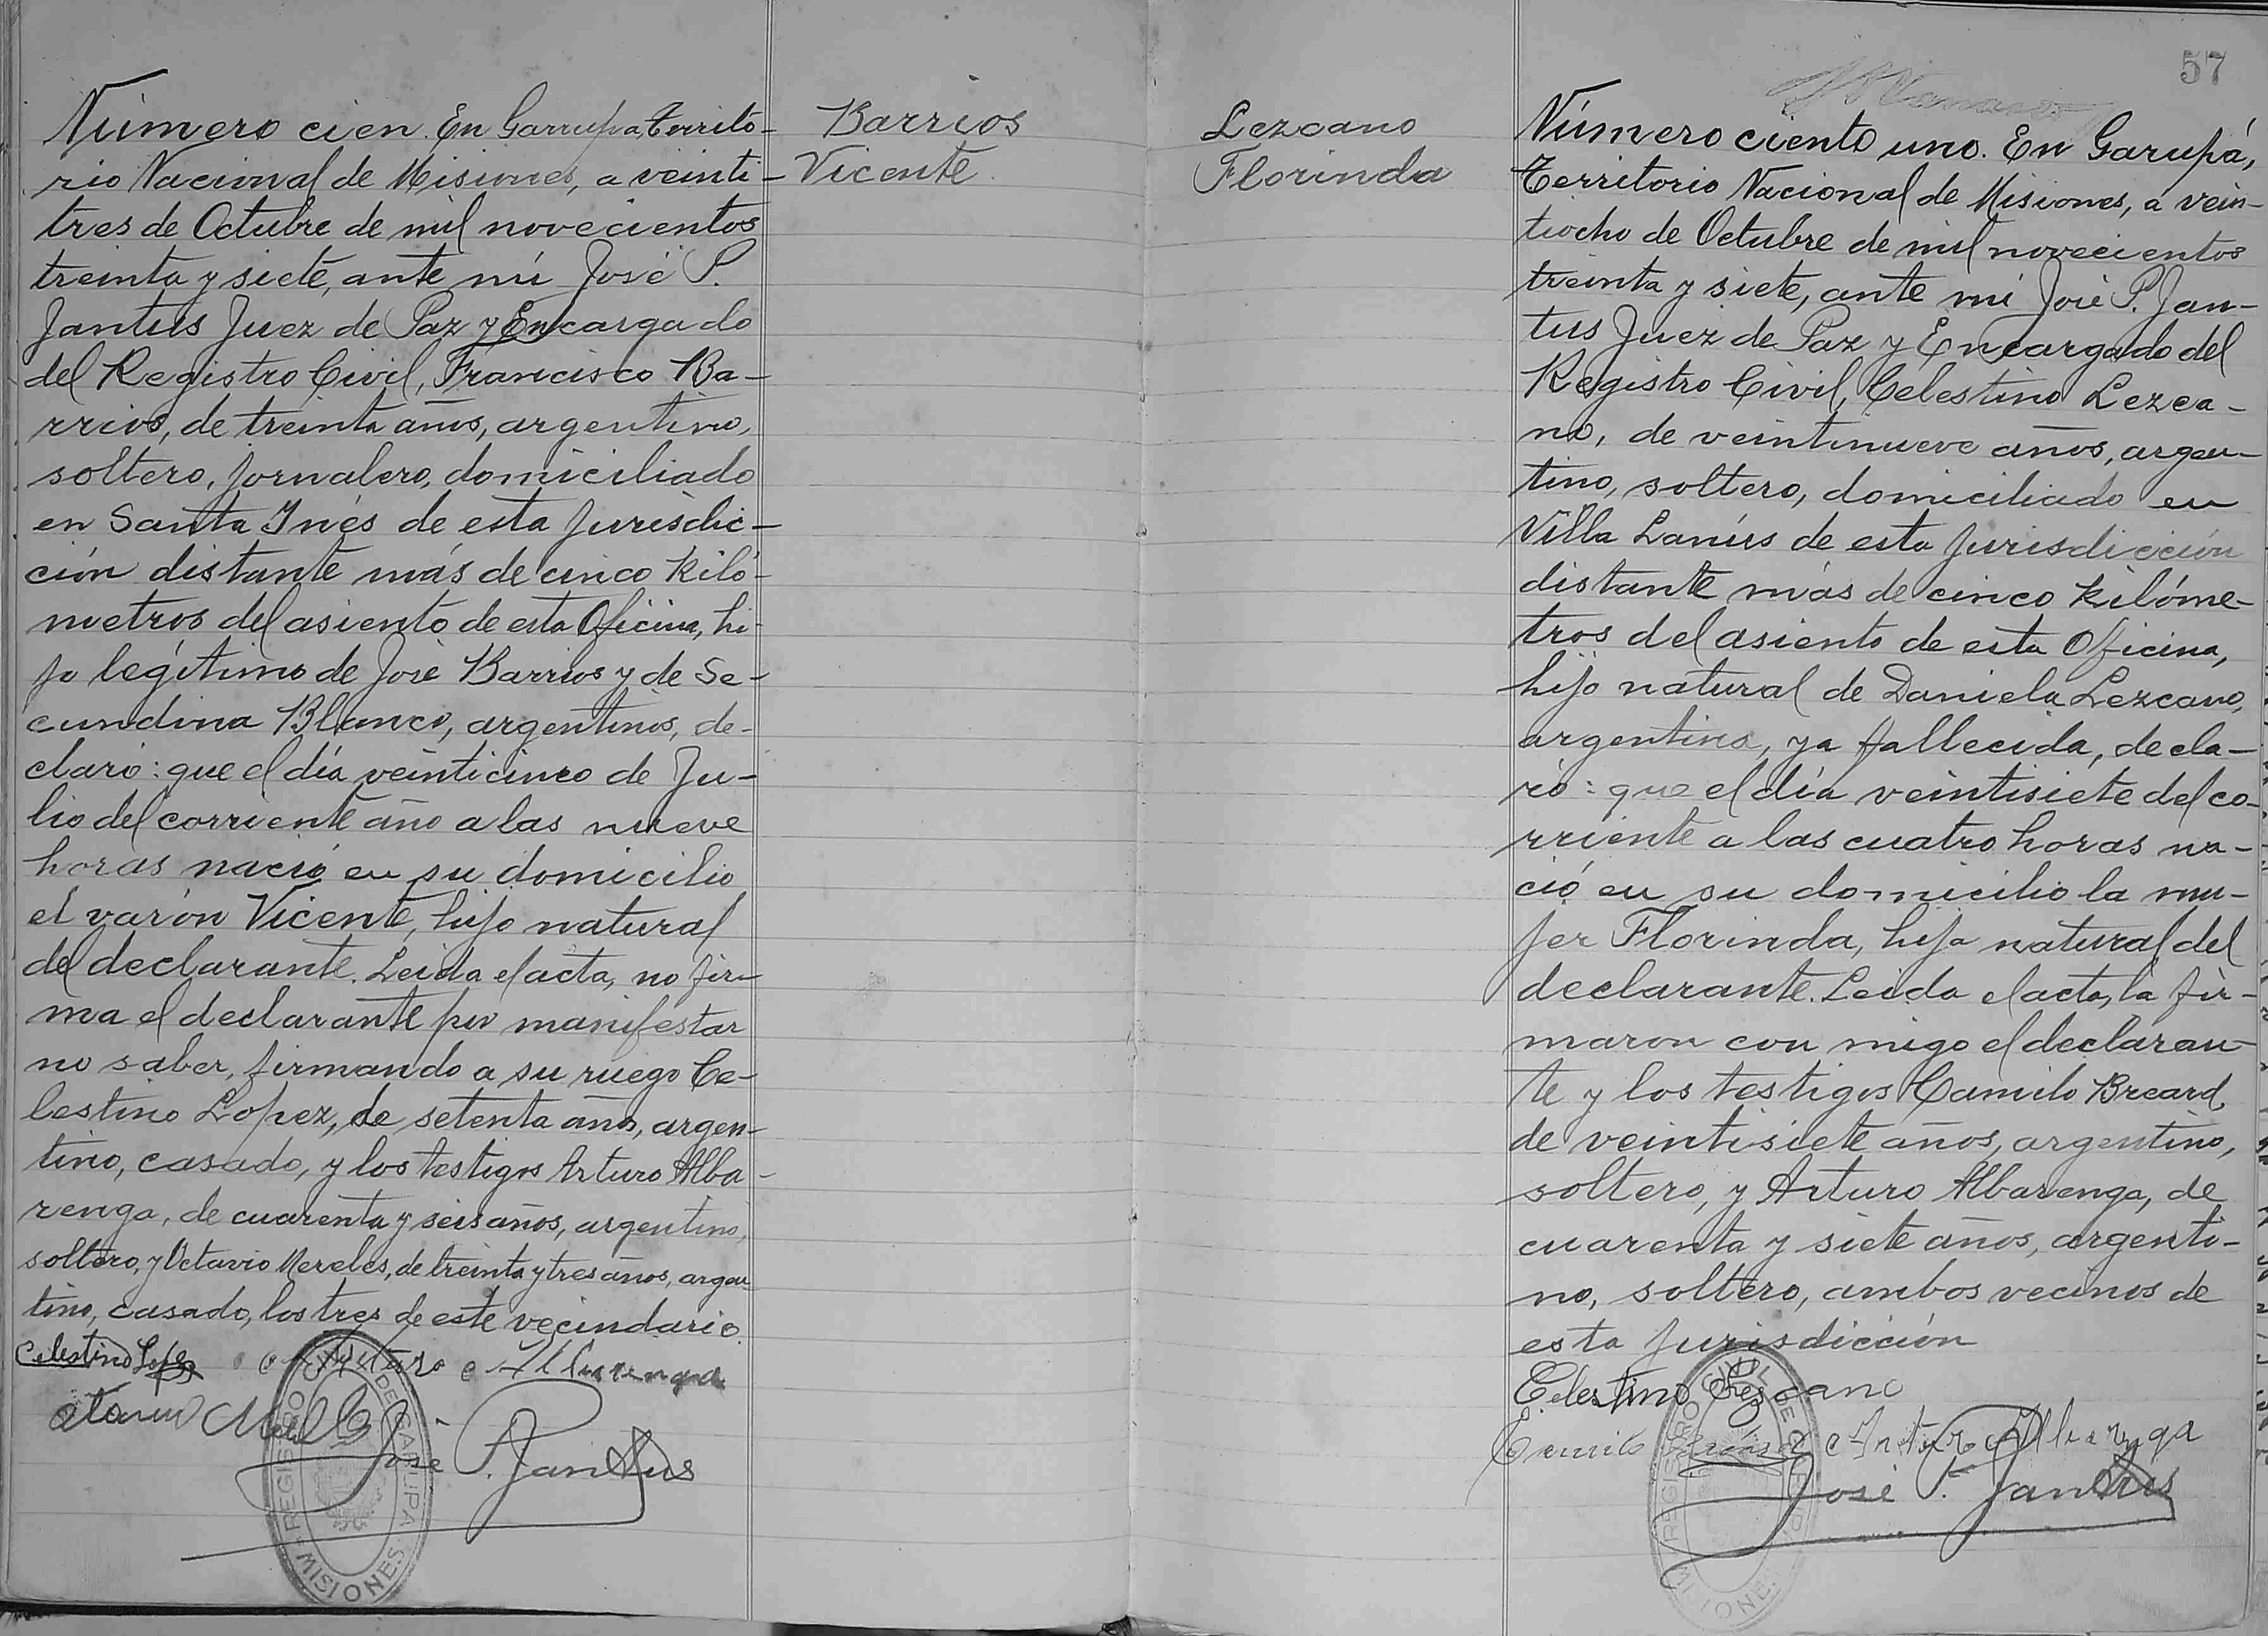 Número cien. En Garrupa, Territo-
rio Nacional de Misiones, a veinti-
tres de Octubre de mil novecientos
treinta y siete, ante mi José P.
Jantus Juez de Paz y Encargado
del Registro Civil, Francisco Ba-
rrios, de treinta años, argentino,
soltero, jornalero, domiciliado
en Santa Inés de esta jurisdic-
ción distante más de cinco kiló-
metros del asiento de esta Oficina, hi-
jo legítimo de José Barrios y de Se-
cundina Blanco, argentinos, de-
claró: que el día veinticinco de Ju-
lio del corriente año a las nueve
horas nació en su domicilio
el varón Vicente, hijo natural
del declarante. Leida el acta, no fir-
ma el declarante por manifestar
no saber, firmando a su ruego Ce-
lestino Lopez, de setenta años, argen-
tino, casado, y los testigos Arturo Alba-
renga, de cuarenta y seis años, argentino,
soltero, y Octavio Mereles, de treinta y tres años, argen-
tino, casado, los tres de este vecindario.
Celestino Lopez Arturo Albarenga
José P. Jantus
REGISTRO CIVIL DE GARUPA
MISIONES
Barrios
Vicente
Lezcano
Florinda
57
Número ciento uno. En Garupá,
Territorio Nacional de Misiones, a vein-
tiocho de Octubre de mil novecientos
treinta y siete, ante mí José P. Jan-
tus Juez de Paz y Encargado del
Registro Civil, Celestino Lezca-
no, de veintinueve años, argen-
tino, soltero, domiciliado en
Villa Lanús de esta jurisdicción
distante más de cinco kilóme-
tros del asiento de esta Oficina,
hijo natural de Daniela Lezcano,
argentina, ya fallecida, decla-
ró: que el día veintisiete del co-
rriente a las cuatro horas na-
ció en su domicilio la mu-
jer Florinda, hija natural del
declarante. Leida el acta, la fir-
maron con migo el declaran-
te y los testigos Camilo Breard,
de veintisiete años, argentino,
soltero, y Arturo Albarenga, de
cuarenta y siete años, argenti-
no, soltero, ambos vecinos de
esta jurisdicción
Celestino Lezcano
Camilo Arturo Albarenga
José P. Jantus
REGISTRO CIVIL DE
MISIONES